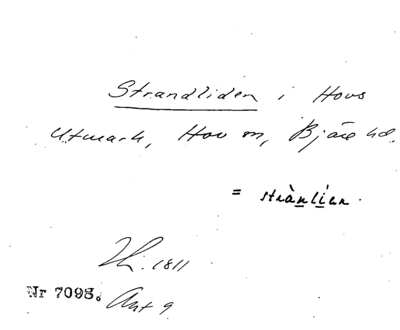 Strandliden i Hovs
utmark, Hov sn, Bjäre hd.
= strànlíen.
1811
Nr 7098.